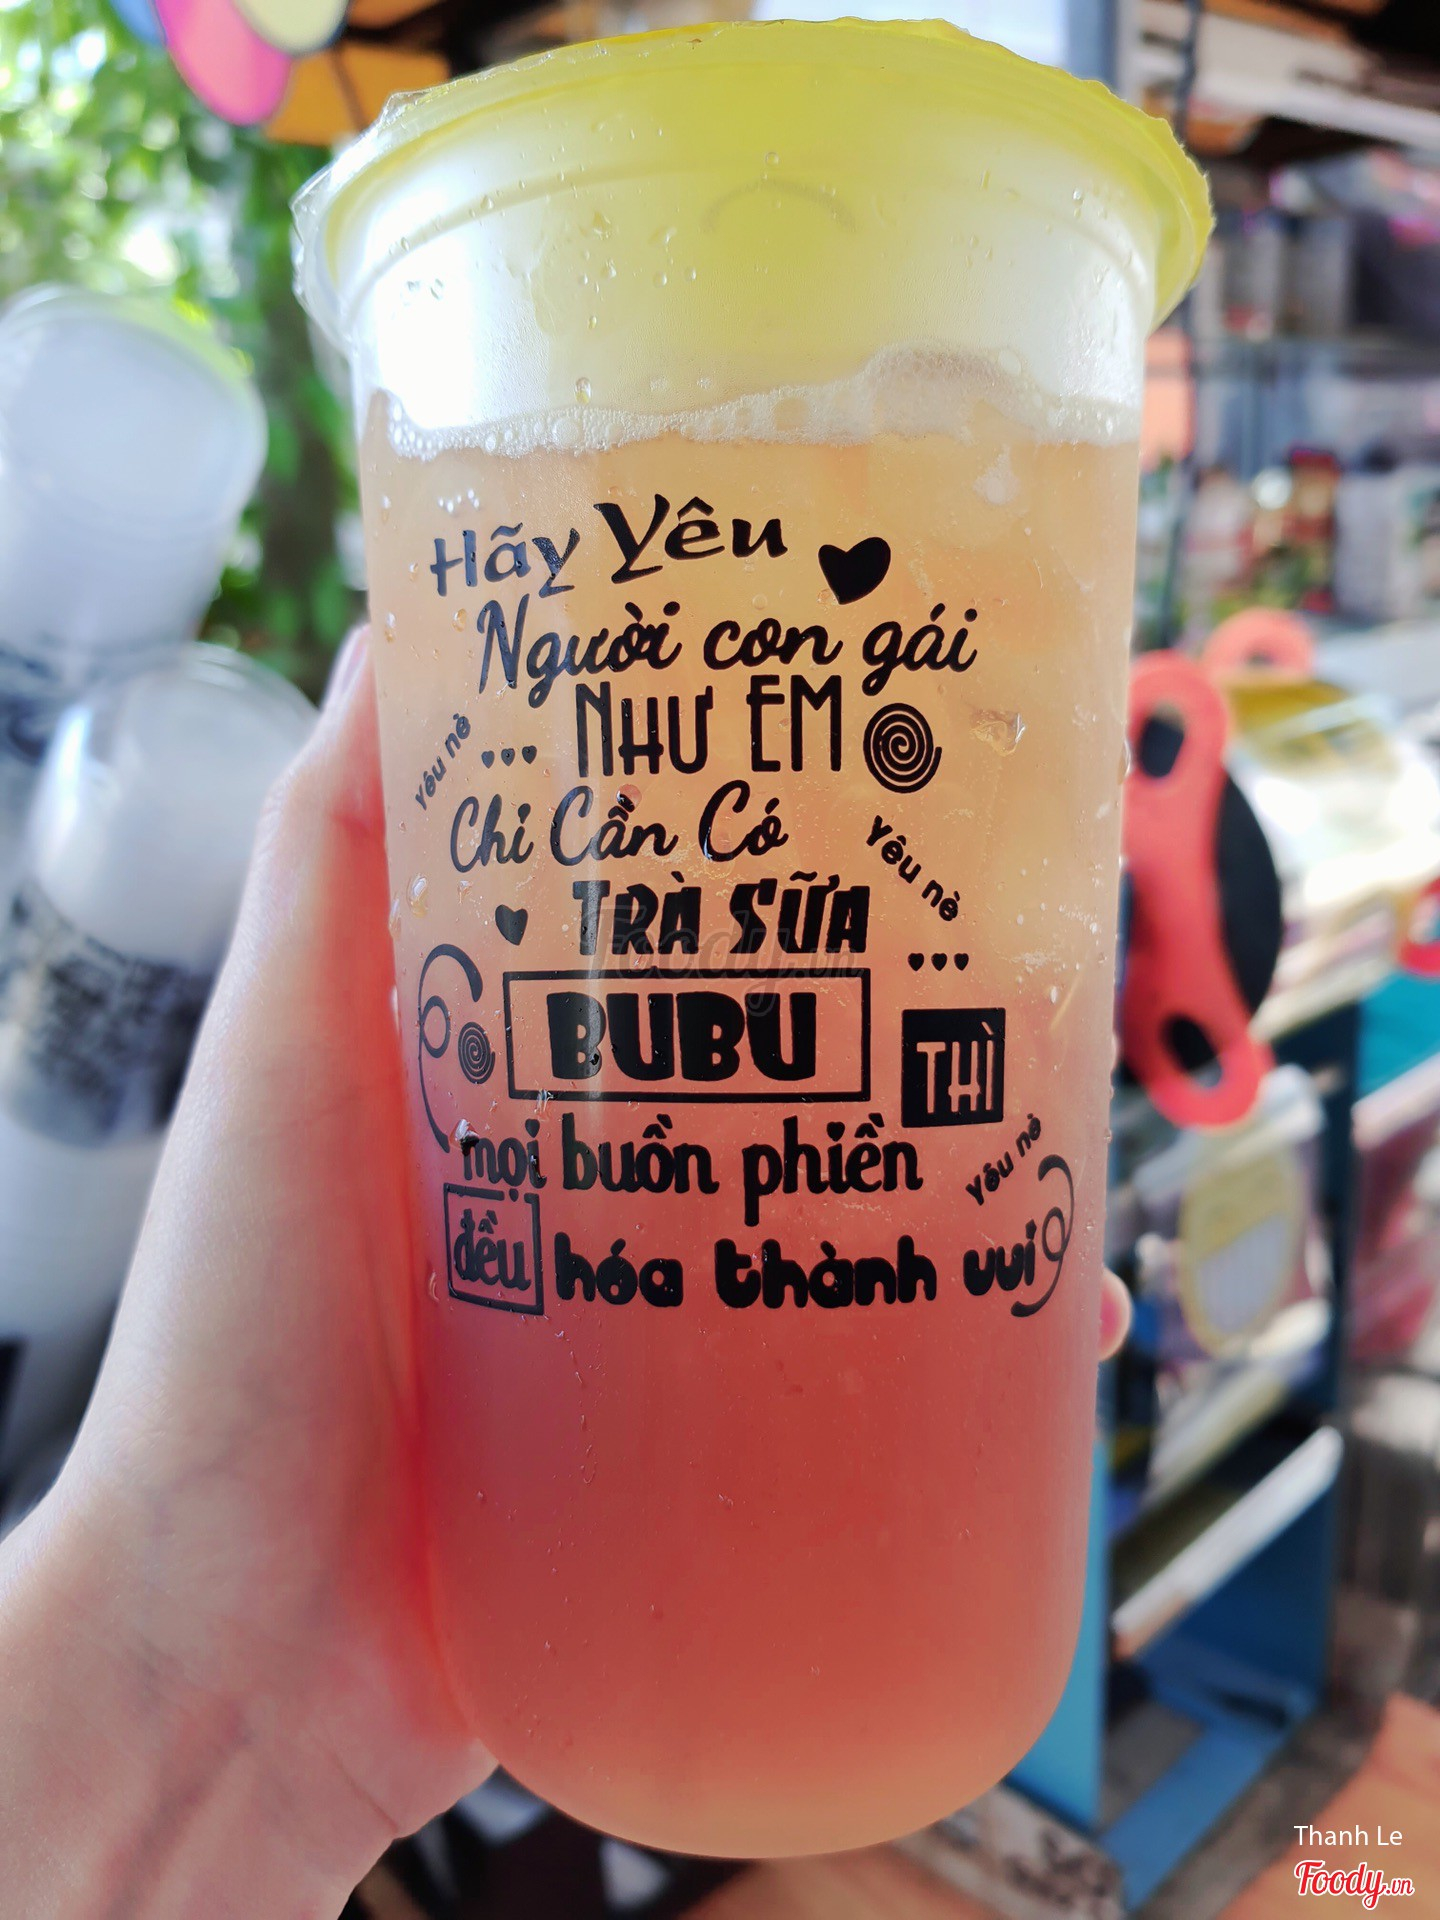 Hãy Yêu
Người con gái
NHƯ EM
Yêu nè
Chỉ Cần Có
Yêu nè
TRÀ SỮA
BUBU
THÌ
mọi buồn phiền
Yêu nè
đều hóa thành vui
Foody.vn
Thanh Le
Foody.vn